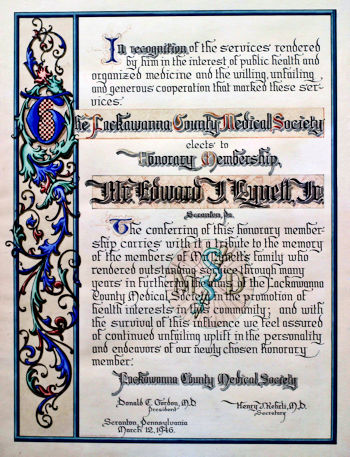 In recognition of the services rendered
by him in the interest of public health and
organized medicine and the willing, unfailing
and generous cooperation that marked these ser-
vices:
The Lackawanna County Medical Society
elects to
Honorary Membership,
Mr. Edward J. Lynett, Jr.
Scranton, Pa.
The conferring of this honorary member-
ship carries with it a tribute to the memory
of the members of Mr. Lynett's family who
rendered outstanding service through many
years in the Lackawanna
County Medical Society the promotion of
health interests in community; and with
the survival of this influence we feel assured
of continued unfailing uplift in the personality
and endeavors of our newly chosen honorary
member:
Lackawanna County Medical Society
Donald C. Gordon, M.D. Henry J. M.D.
President Secretary
Scranton, Pennsylvania
March 12, 1946.